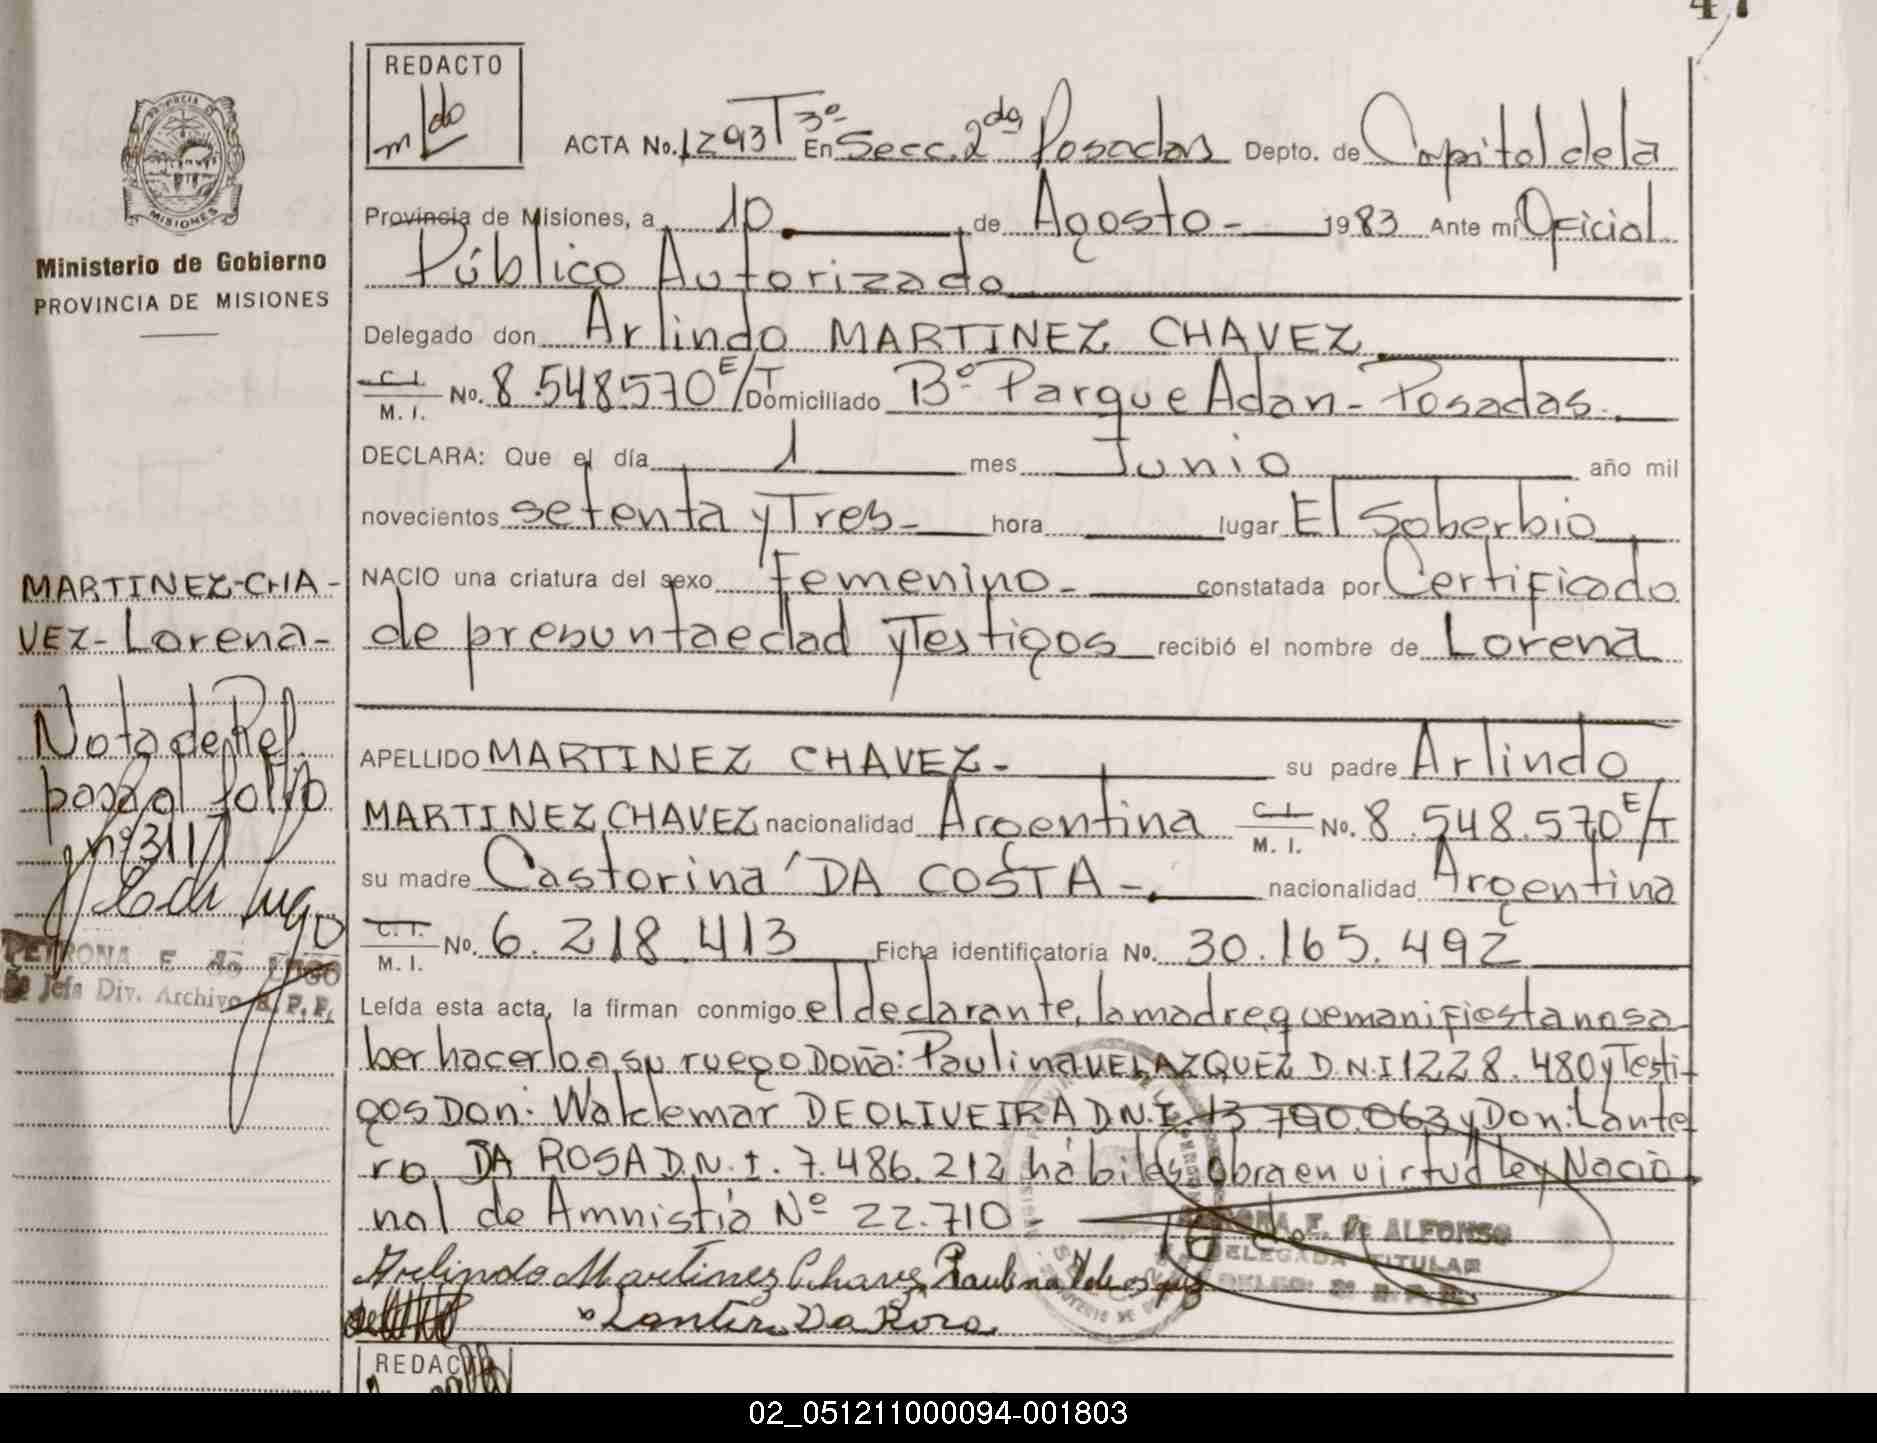 47
REDACTO
ACTA No. 1293 T 3º En Secc. 2da Posadas Depto. de Capital de la
Provincia de Misiones, a 10 de Agosto - 1983 Ante mí Oficial
Público Autorizado
Delegado don Arlindo MARTINEZ CHAVEZ
C.I. M. I. No. 8.548.570 E/T Domiciliado Bº Parque Adan - Posadas.
DECLARA: Que el día 1 mes Junio año mil
novecientos setenta y Tres - hora lugar El Soberbio
NACIO una criatura del sexo Femenino - constatada por Certificado
de presunta edad y Testigos recibió el nombre de Lorena
APELLIDO MARTINEZ CHAVEZ - su padre Arlindo
MARTINEZ CHAVEZ nacionalidad Argentina C.I. M. I. No. 8.548.570 E/T
su madre Castorina DA COSTA - nacionalidad Argentina
C.I. M. I. No. 6.218.413 Ficha identificatoria No. 30.165.492
Leída esta acta, la firman conmigo el declarante, la madre que manifiesta no sa
ber hacerlo a su ruego Doña: Paulina VELAZQUEZ D.N.I 1228.480 y Testi-
gos Don: Waldemar DE OLIVEIRA D.N.I. 13.790.063 y Don: Lante
ro DA ROSA D.N.I. 7.486.212 hábiles, obra en virtud Ley Nacio
nal de Amnistia Nº 22.710 -
Arlindo Martinez Chavez Paulina
Lantero Da Rosa
E. de ALFONSO
DELEGADA TITULAR
REDACTO
PROVINCIA DE
MISIONES
Ministerio de Gobierno
PROVINCIA DE MISIONES
MARTINEZ-CHA-
VEZ- Lorena-
Nota de Ref.
pasa al folio
nº 311
PETRONA E de LUGO
Jefa Div. Archivo R. P. P.
02_051211000094-001803